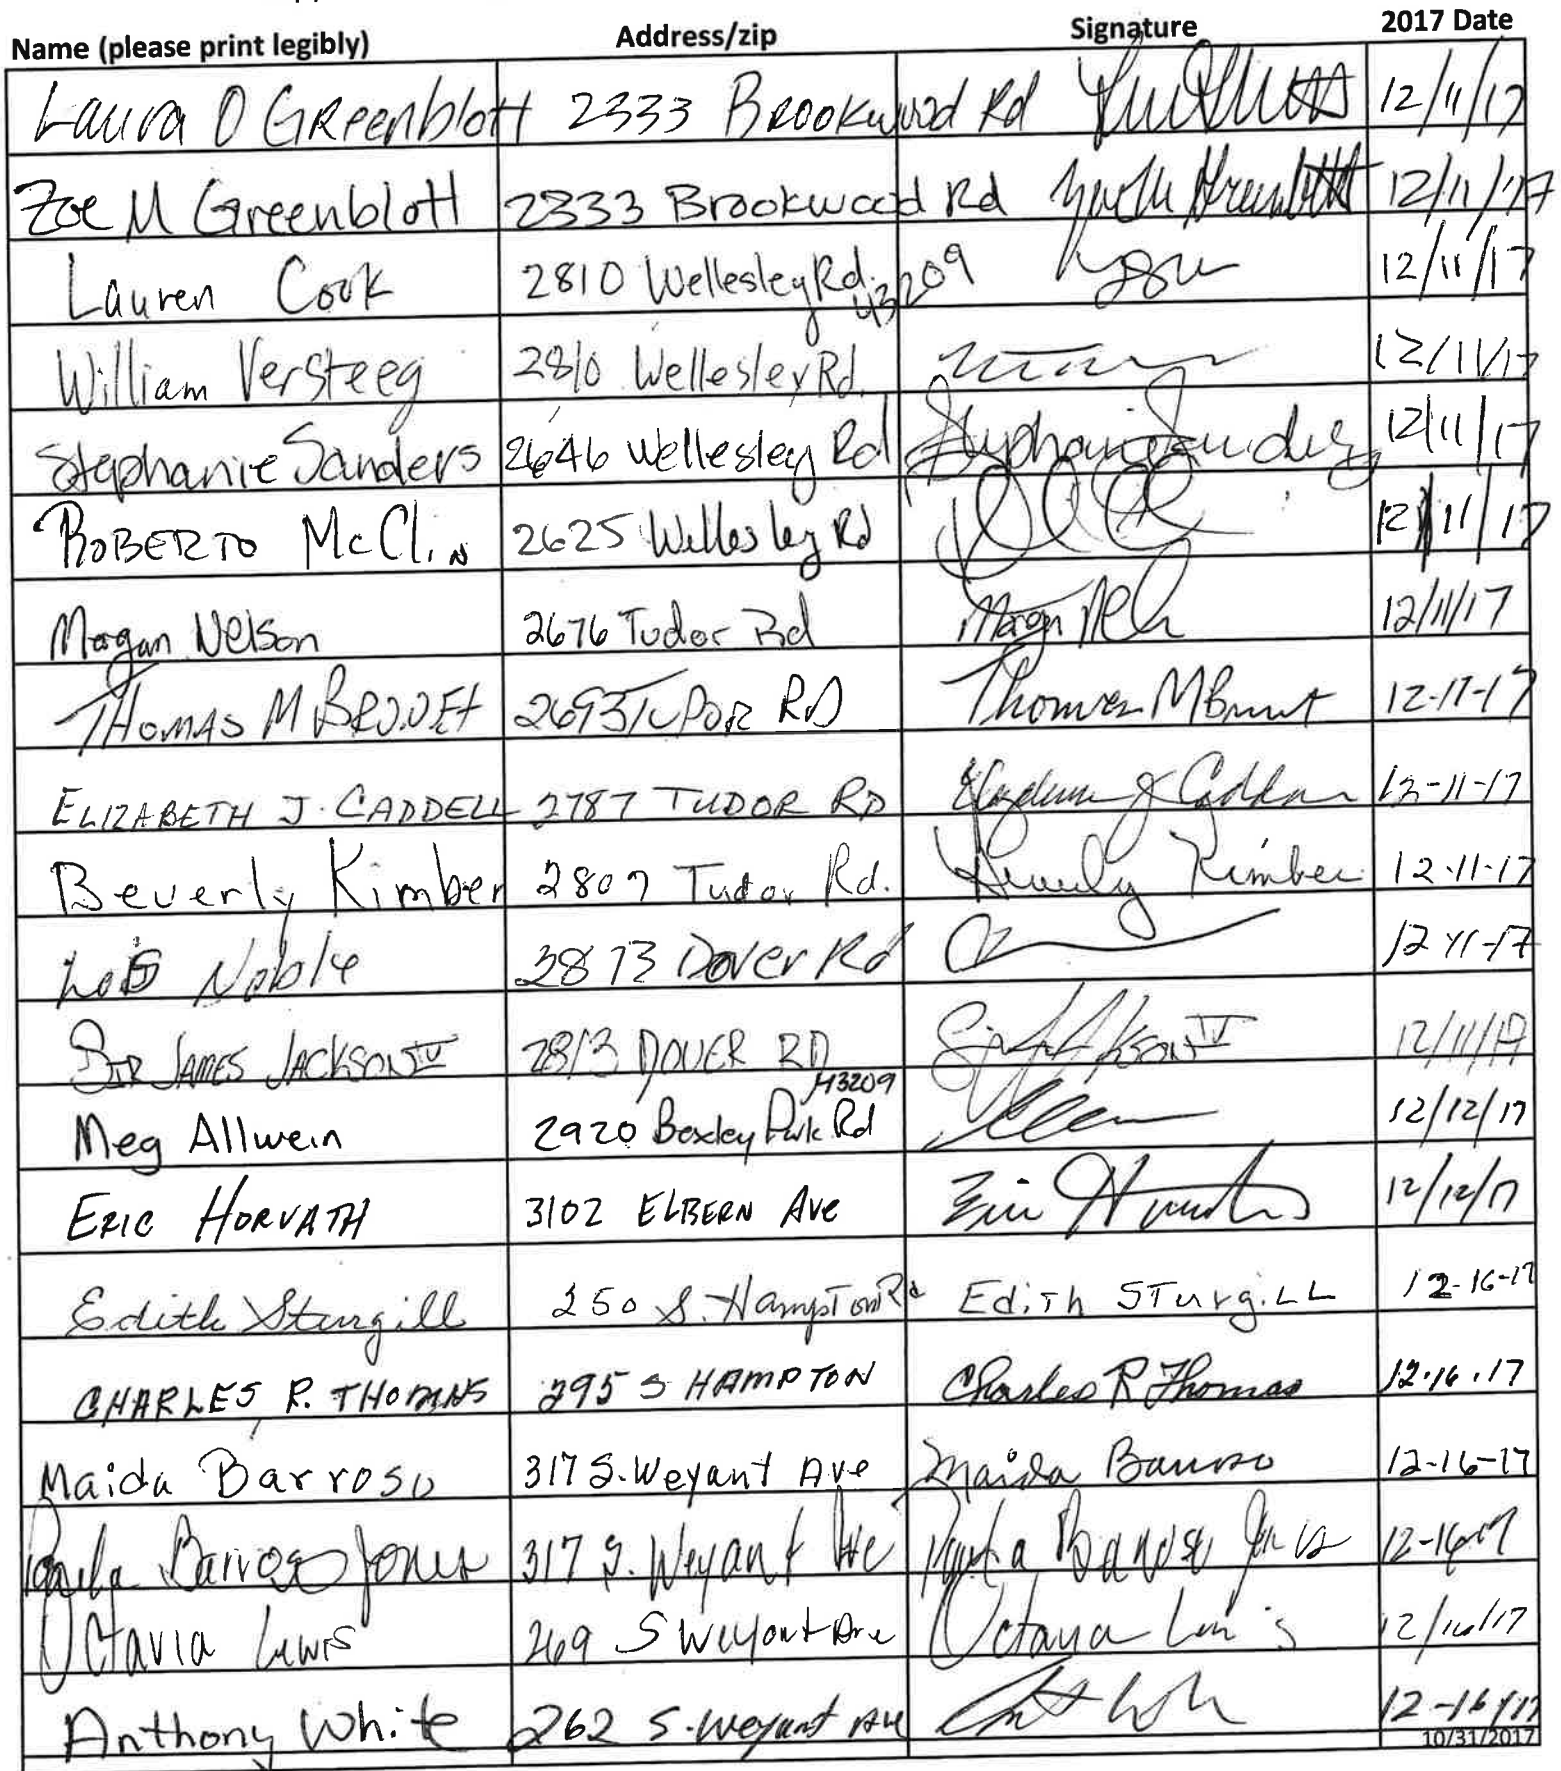 Name (please print legibly) Address/zip Signature 2017 Date
Laura O Greenblott 2333 Brookwood Rd 12/11/17
Zoe M Greenblott 2333 Brookwood Rd 12/11/17
Lauren Cook 2810 Wellesley Rd. 43209 12/11/17
William Versteeg 2810 Wellesley Rd. 12/11/17
Stephanie Sanders 2646 Wellesley Rd Stephanie Sanders 12/11/17
ROBERTO McClin 2625 Wellesley Rd 12/11/17
Megan Nelson 2676 Tudor Rd 12/11/17
THOMAS M 2693 TUDOR RD Thomas M 12-11-17
ELIZABETH J. CADDELL 2787 TUDOR RD 12-11-17
Beverly Kimber 2807 Tudor Rd. Beverly Kimber 12-11-17
Lois Noble 2873 Dover Rd 12-11-17
SIR JAMES JACKSON IV 2813 DOVER RD 12/11/17
Meg Allwein 2920 Bexley Park Rd 43209 12/12/17
ERIC HORVATH 3102 ELBERN AVE Eric 12/12/17
Edith Sturgill 250 S. Hampton Rd Edith Sturgill 12-16-17
CHARLES R. THOMAS 295 S HAMPTON Charles R Thomas 12.16.17
Maida Barroso 317 S. Weyant Ave Maida Barroso 12-16-17
Paula Barroso Jones 317 S. Weyant Ave Paula Barroso Jones 12-16-17
Octavia Lewis 269 S Weyant Ave Octavia Lewis 12/16/17
Anthony White 262 S. Weyant Ave 12-16-17
10/31/2017